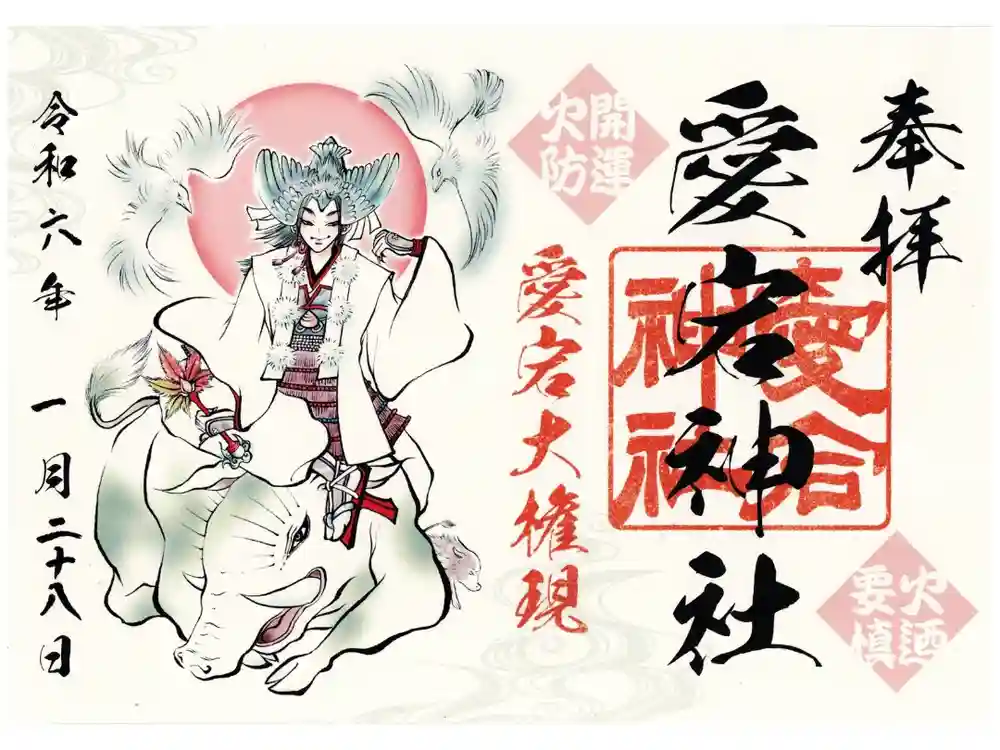 奉拝
愛宕神社
愛宕
神社
火迺
要慎
開運
火防
愛宕大権現
令和六年一月二十八日